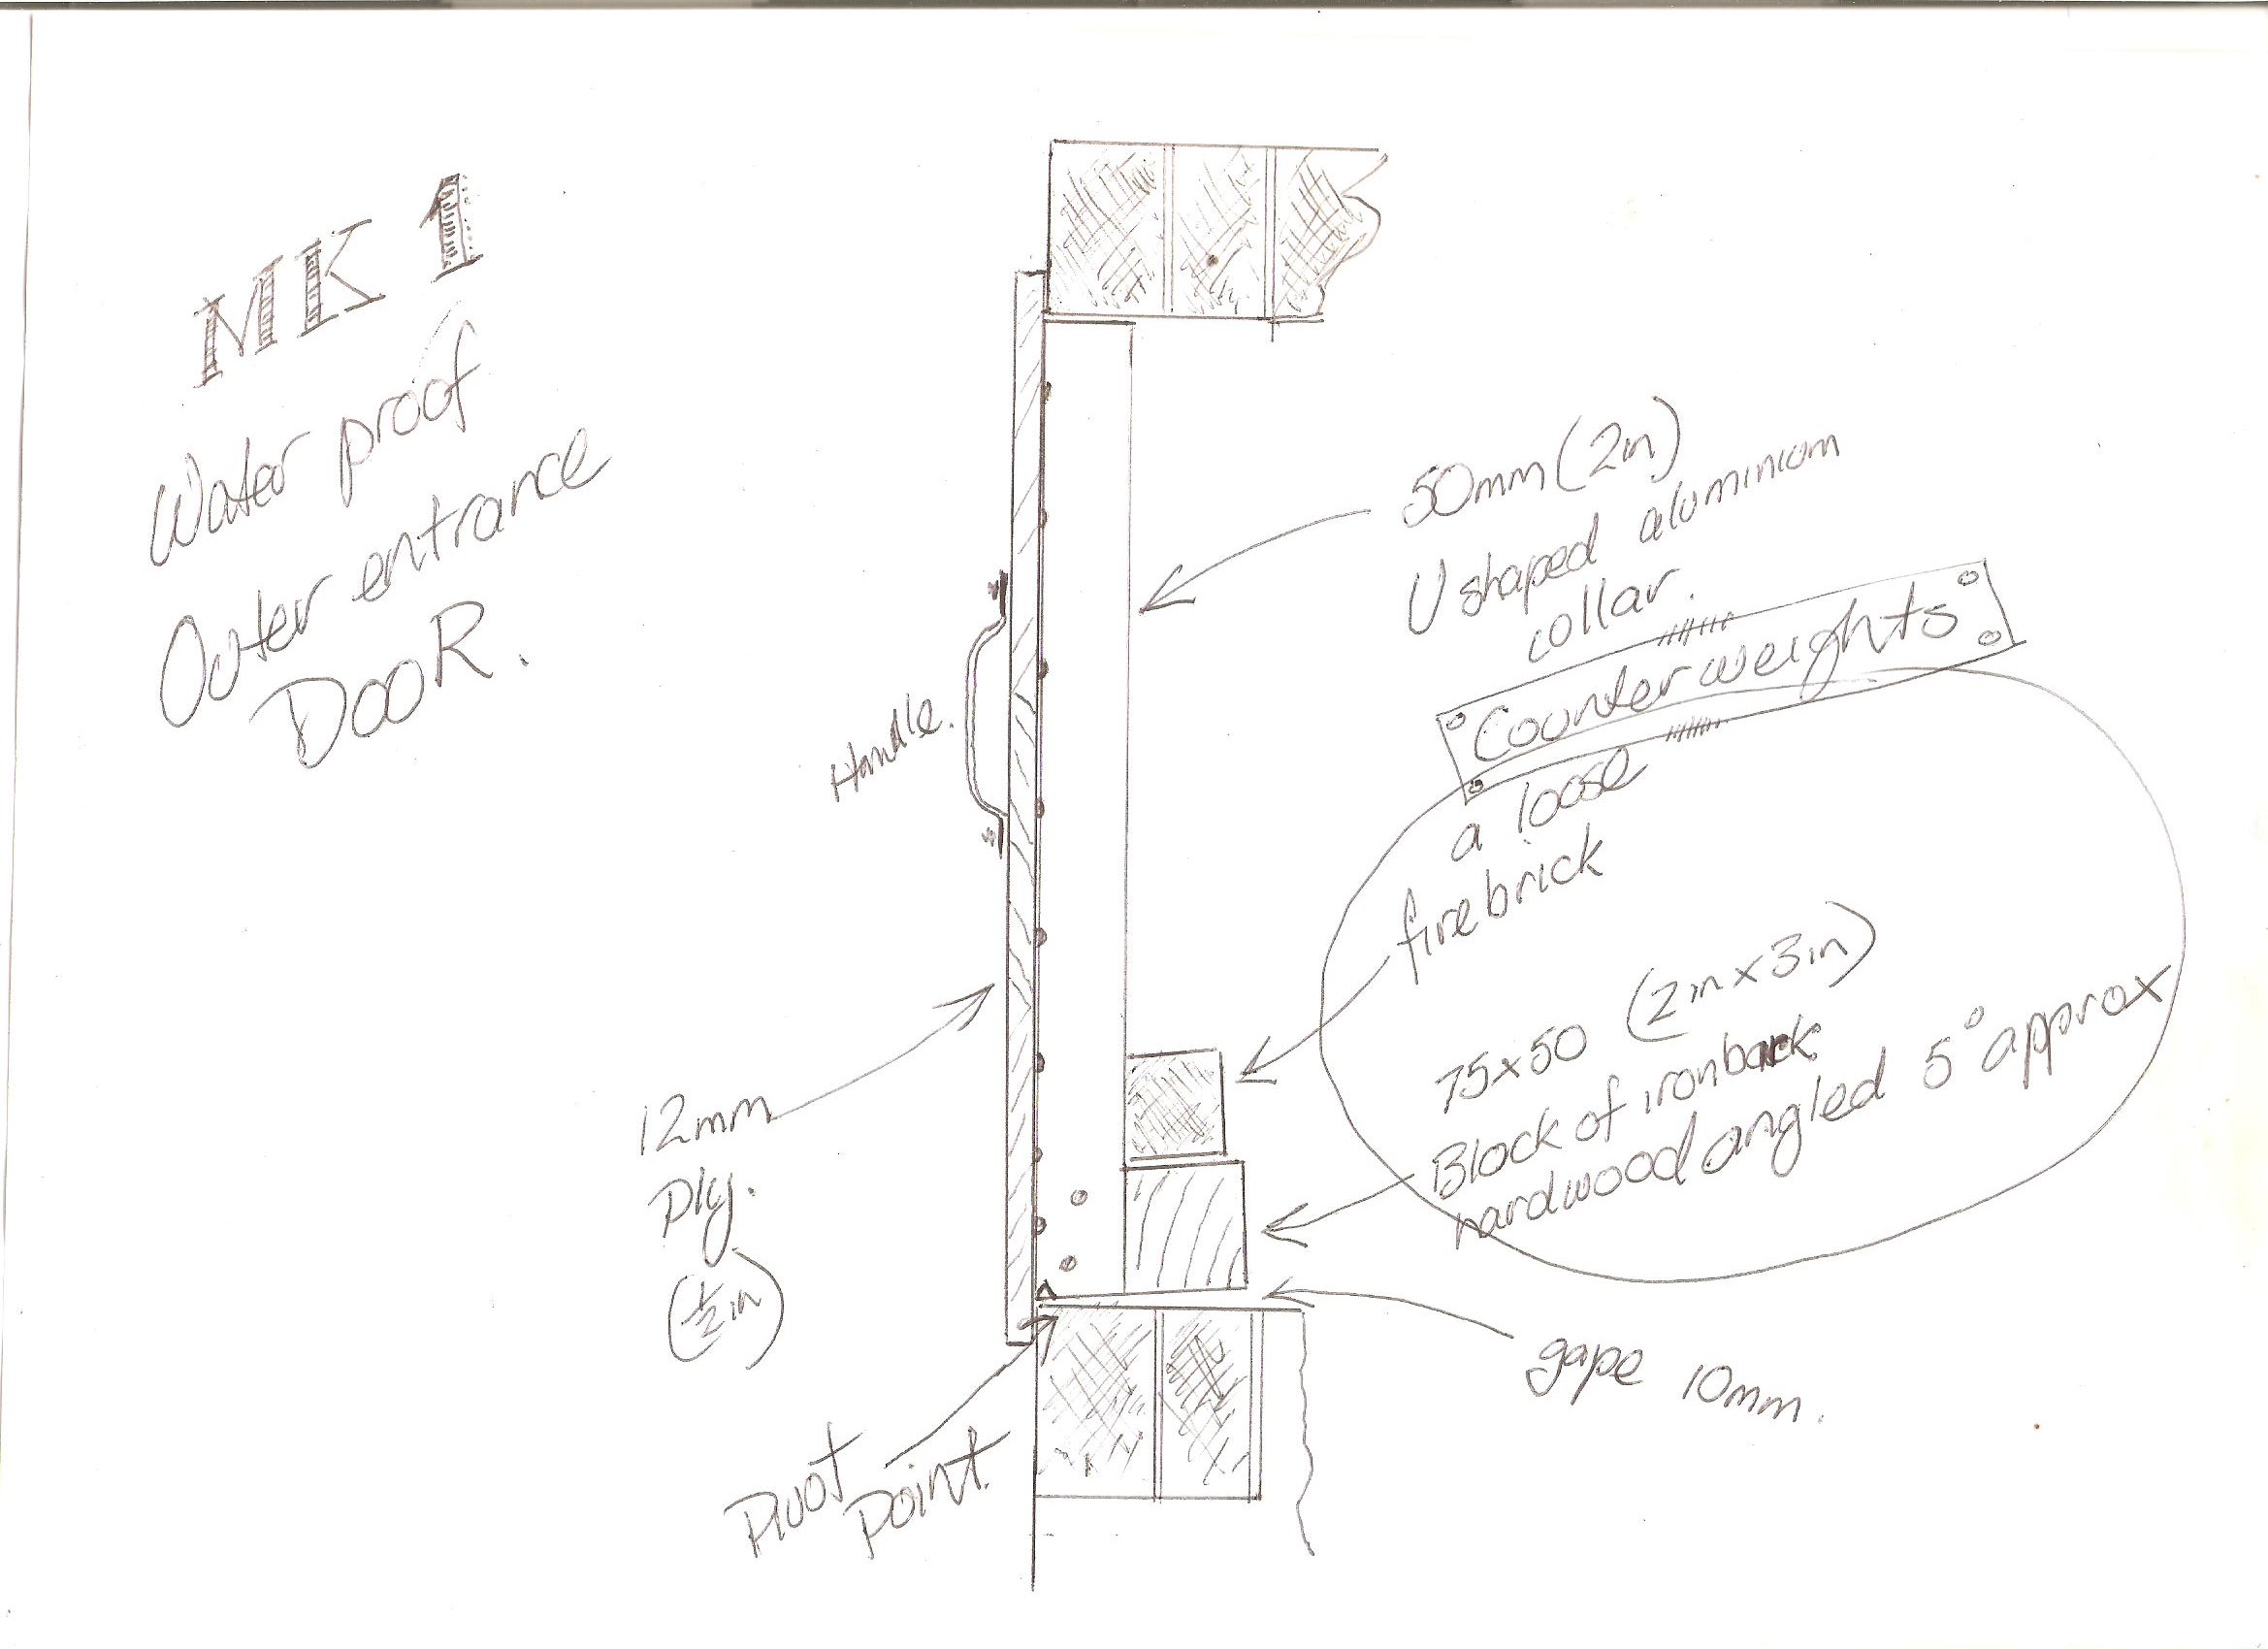 MK 1
Water proof
Outer entrance
DOOR.
50mm (2in)
U shaped aluminium
collar.
Counter weights
a loose
firebrick
75x50 (2in x 3in)
Block of ironbark
hardwood angled 5° approx
Handle.
12mm
Ply.
(½in)
gape 10mm.
Pivot
point.